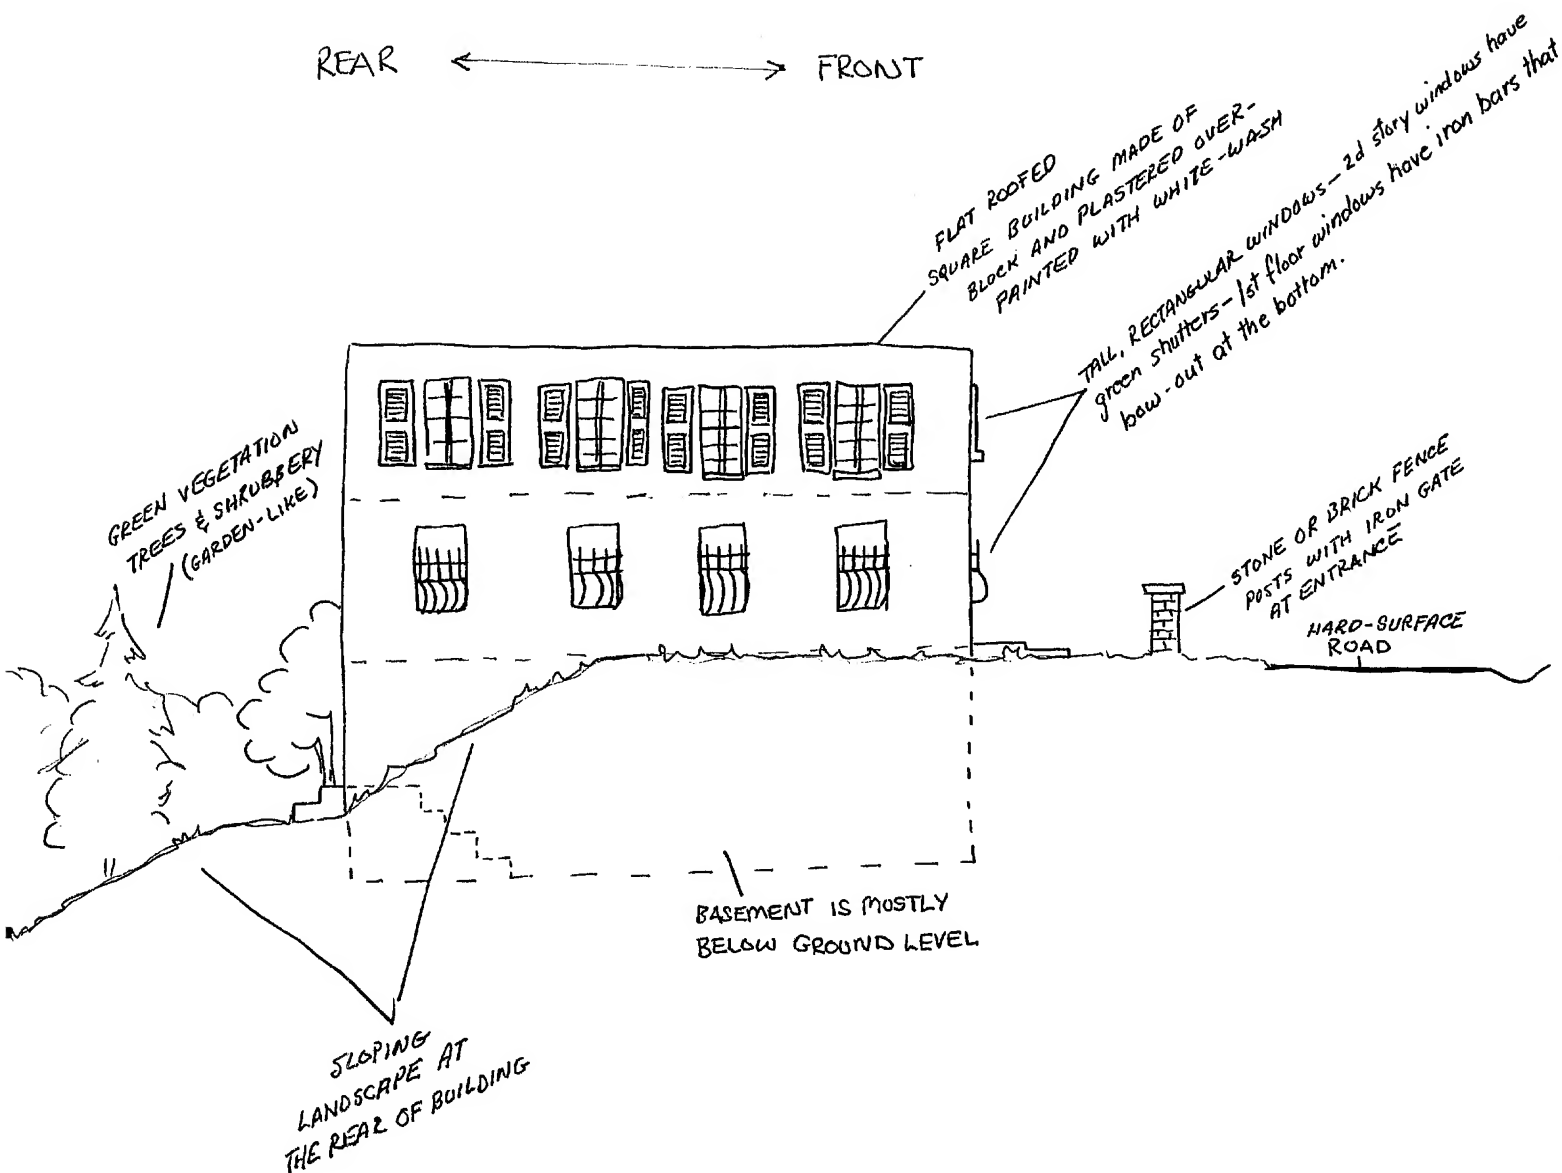 REAR FRONT
FLAT ROOFED
SQUARE BUILDING MADE OF
BLOCK AND PLASTERED OVER-
PAINTED WITH WHITE-WASH
TALL, RECTANGULAR WINDOWS - 2d story windows have
green shutters - 1st floor windows have iron bars that
bow-out at the bottom.
GREEN VEGETATION
TREES & SHRUBBERY
(GARDEN-LIKE)
STONE OR BRICK FENCE
POSTS WITH IRON GATE
AT ENTRANCE
HARD-SURFACE
ROAD
BASEMENT IS MOSTLY
BELOW GROUND LEVEL
SLOPING
LANDSCAPE AT
THE REAR OF BUILDING